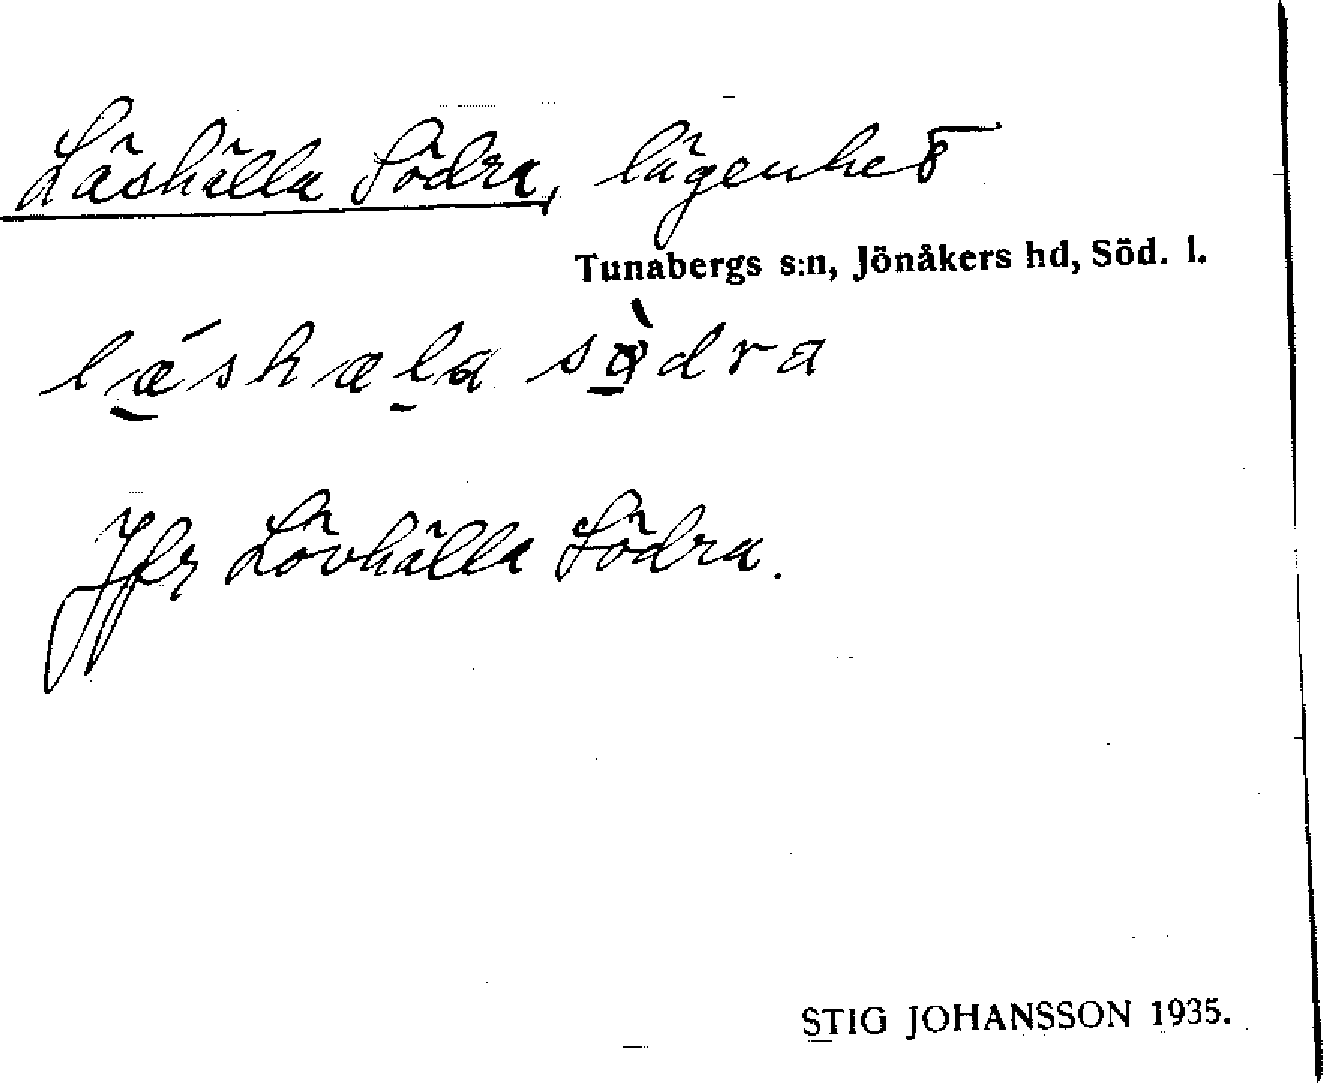 Läshälla Södra, lägenhet
Tunabergs s:n, Jönåkers hd, Söd. l.
lǽshæla sø̀dra
Jfr Lövhälla Södra.
STIG JOHANSSON 1935.